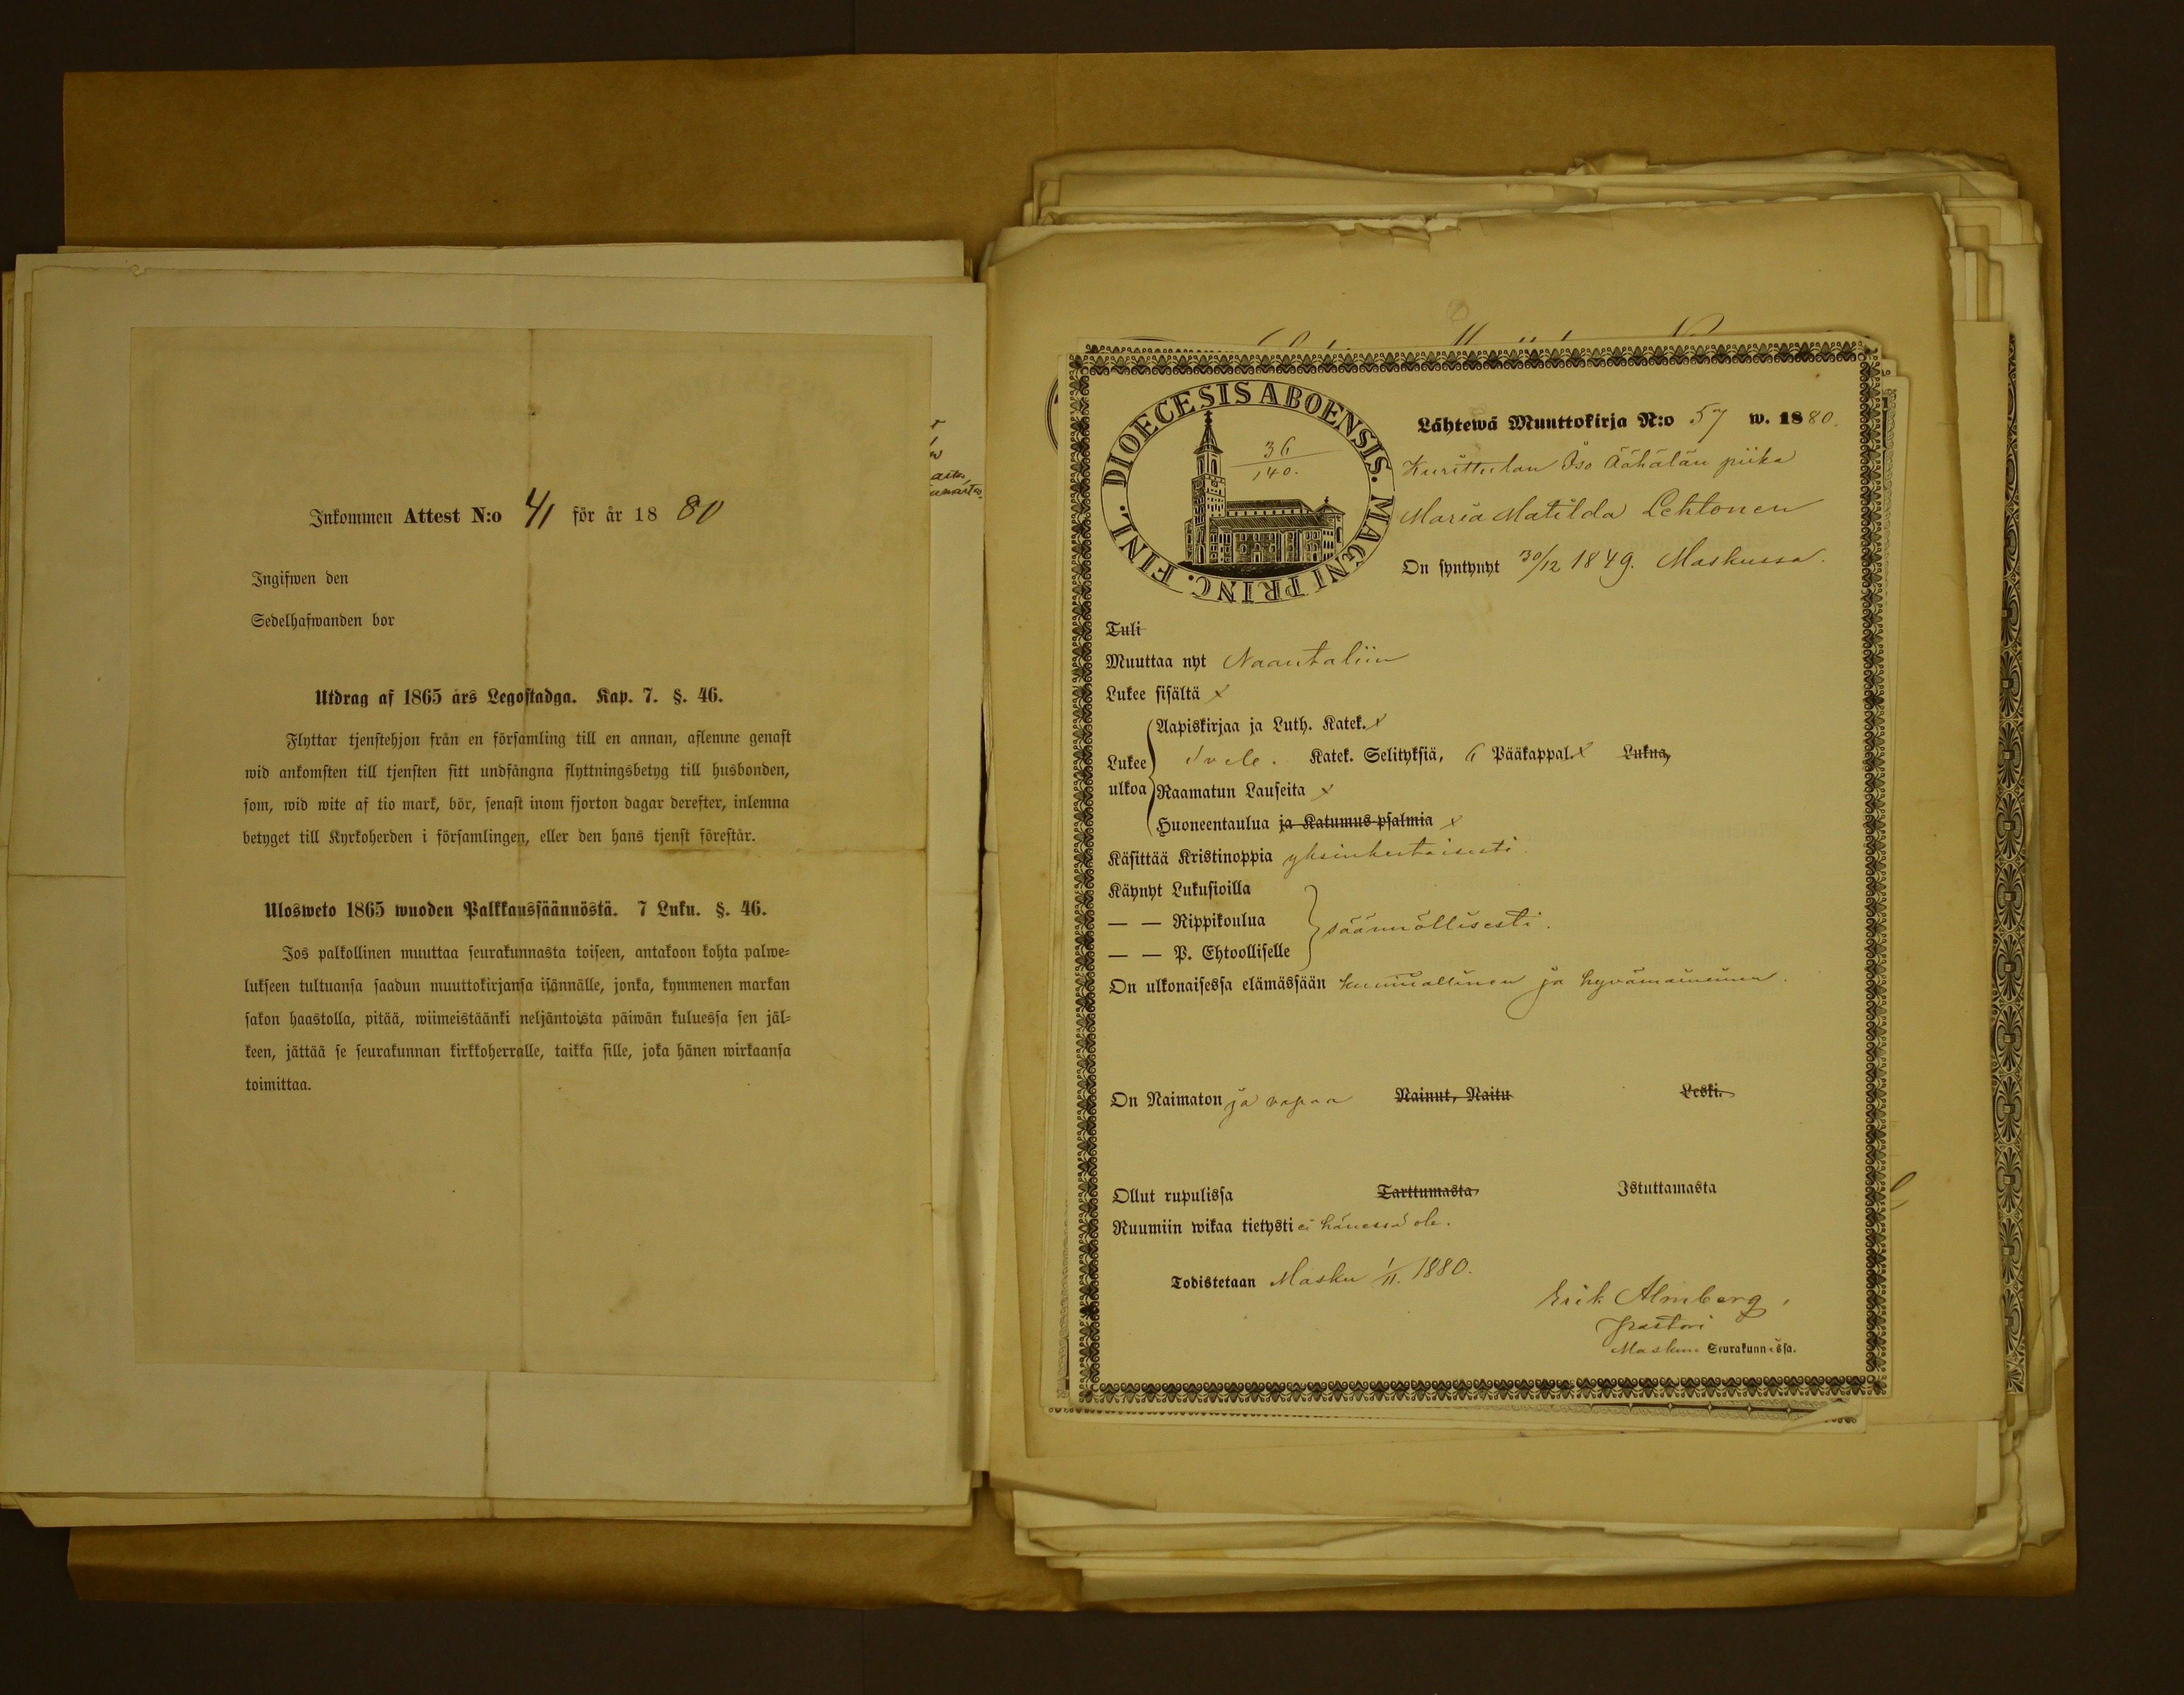 Inkommen Attest N:o 41 för år 1880
Ingifwen den
Sedelhafwanden bor
Utdrag af 1865 års Legostadga. Kap. 7. §. 46.
Flyttar tjenstehjon från en församling till en annan, aflemne genast
wid ankomsten till tjensten sitt undfångna flyttningsbetyg till husbonden,
som, wid wite af tio mark, bör, senast inom fjorton dagar derefter, inlemna
betyget till Kyrkoherden i församlingen, eller den hans tjenst förestår.
Ulosweto 1865 wuoden Palkkaussäännöstä. 7 Luku. §. 46.
Jos palkollinen muuttaa seurakunnasta toiseen, antakoon kohta palwe-
lukseen tultuansa saadun muuttokirjansa isännälle, jonka, kymmenen markan
sakon haastolla, pitää, wiimeistäänki neljäntoista päiwän kuluessa sen jäl-
keen, jättää se seurakunnan kirkkoherralle, taikka sille, joka hänen wirkaansa
toimittaa.
DIOECESIS ABOENSIS. MAGNI PRINC. FINL.
36
140.
Lähtewä Muuttokirja N:o 57 w. 1880.
Kurittulan Iso Äähälän piika
Maria Matilda Lehtonen
On syntynyt 30/12 1849. Maskussa.
Tuli
Muuttaa nyt Naantaliin
Lukee sisältä x
Lukee ulkoa
Aapiskirjaa ja Luth. Katek. x
Katek. Selityksiä, 6 Pääkappal. x Lukua,
Raamatun Lauseita x
Huoneentaulua ja Katumus-psalmia x
Käsittää Kristinoppia yksinkertaisesti
Käynyt Lukusioilla
— — Rippikoulua säännöllisesti.
— — P. Ehtoolliselle
On ulkonaisessa elämässään kunniallinen ja hyvämaineinen.
On Naimaton ja vapaa Nainut, Naitu Leski.
Ollut rupulissa Tarttumasta Istuttamasta
Ruumiin wikaa tietysti ei hänessä ole.
Todistetaan Masku 1/11. 1880.
Erik Almberg,
Pastori
Maskun Seurakunnassa.